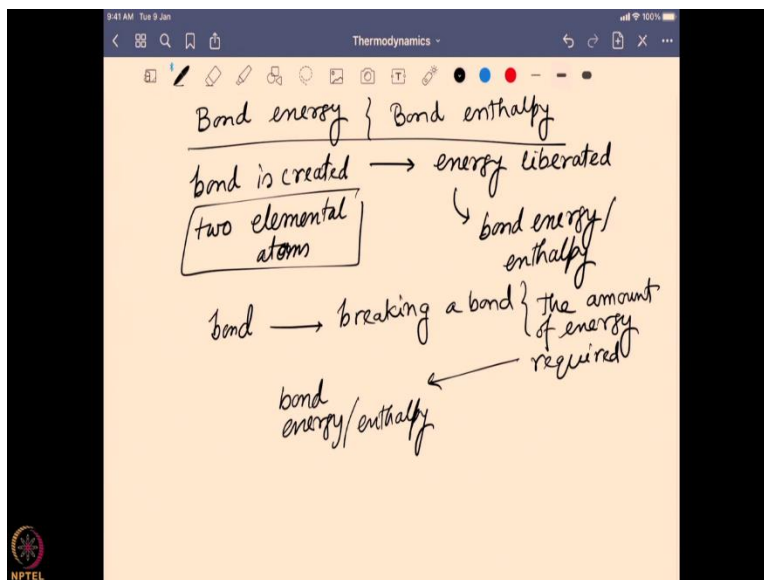 9:41 AM Tue 9 Jan
100%
Thermodynamics
Bond energy } Bond enthalpy
bond is created → energy liberated
two elemental
atoms
↳ bond energy/
enthalpy
bond → breaking a bond } the amount
of energy
required
bond
energy/enthalpy
NPTEL